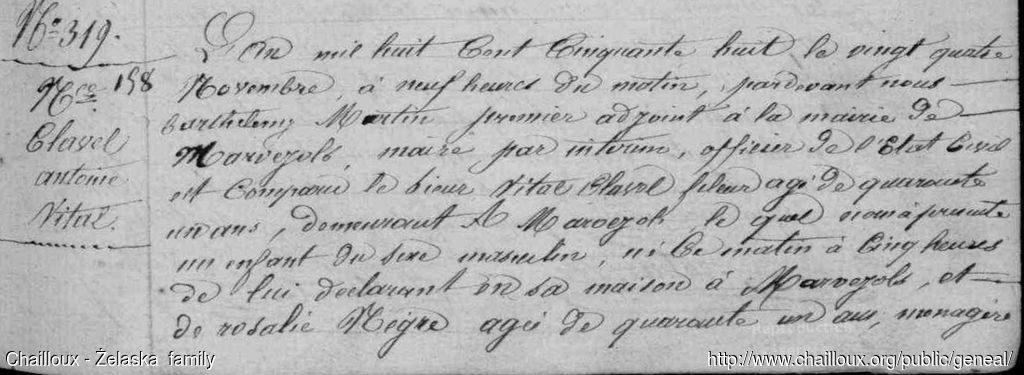 N.o 319.
N.ce 158
Clavel
antoine
Vital.
L'an mil huit Cent Cinquante huit le vingt quatre
Novembre, à neuf heures du matin, pardevant nous
barthelemy Martin premier adjoint à la mairie de
Marvejols, maire par interim, officier de l'Etat Civil
est Comparu le sieur Vital Clavel fileur agé de quarante
un ans, demeurant A Marvejols le quel nous à presente
un enfant du sexe masculin, né Ce matin à Cinq heures
de lui declarant en sa maison à Marvejols, et
de rosalie Nègre agée de quarante un ans, menagère
Chailloux - Żelaska family
http://www.chailloux.org/public/geneal/